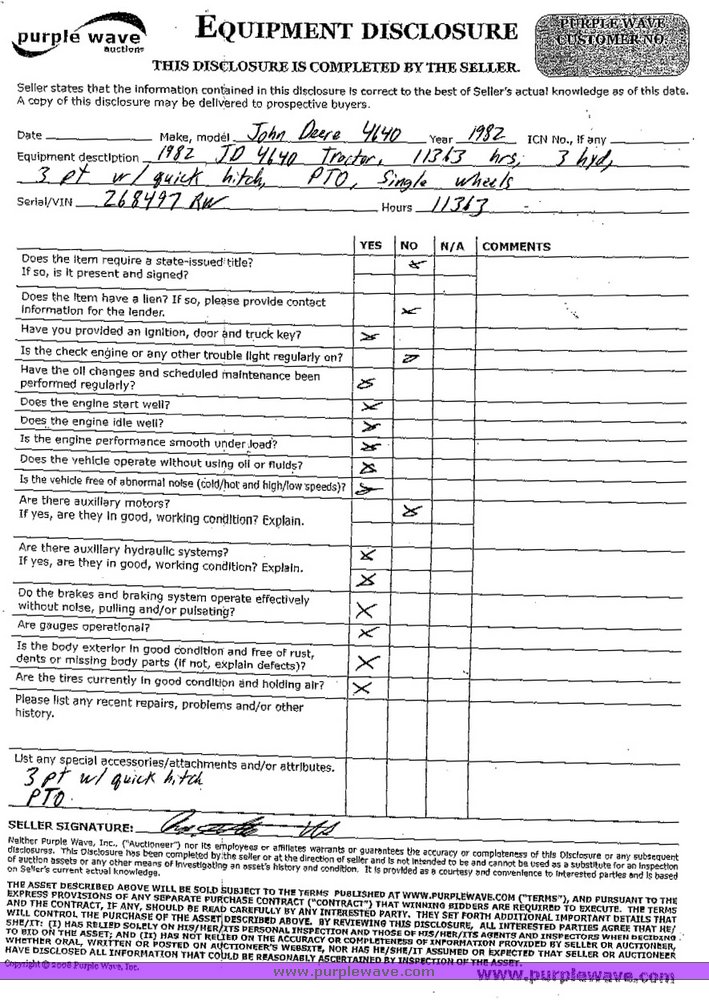 purple wave
auctions
EQUIPMENT DISCLOSURE
PURPLE WAVE
CUSTOMER NO.
THIS DISCLOSURE IS COMPLETED BY THE SELLER.
Seller states that the information contained in this disclosure is correct to the best of Seller's actual knowledge as of this date.
A copy of this disclosure may be delivered to prospective buyers.
Date Make, model John Deere 4640 Year 1982 ICN No., if any
Equipment description 1982 JD 4640 Tractor, 11363 hrs, 3 hyd,
3 pt w/ quick hitch, PTO, Single wheels
Serial/VIN 268497 RW Hours 11363
YES NO N/A COMMENTS
Does the item require a state-issued title?
If so, is it present and signed?
Does the item have a lien? If so, please provide contact
information for the lender.
Have you provided an ignition, door and truck key?
Is the check engine or any other trouble light regularly on?
Have the oil changes and scheduled maintenance been
performed regularly?
Does the engine start well?
Does the engine idle well?
Is the engine performance smooth under load?
Does the vehicle operate without using oil or fluids?
Is the vehicle free of abnormal noise (cold/hot and high/low speeds)?
Are there auxiliary motors?
If yes, are they in good, working condition? Explain.
Are there auxiliary hydraulic systems?
If yes, are they in good, working condition? Explain.
Do the brakes and braking system operate effectively
without noise, pulling and/or pulsating?
Are gauges operational?
Is the body exterior in good condition and free of rust,
dents or missing body parts (if not, explain defects)?
Are the tires currently in good condition and holding air?
Please list any recent repairs, problems and/or other
history.
List any special accessories/attachments and/or attributes.
3 pt w/ quick hitch
PTO
SELLER SIGNATURE:
Neither Purple Wave, Inc., ("Auctioneer") nor its employees or affiliates warrants or guarantees the accuracy or completeness of this Disclosure or any subsequent
disclosures. This Disclosure has been completed by the seller or at the direction of seller and is not intended to be and cannot be used as a substitute for an inspection
of auction assets or any other means of investigating an asset's history and condition. It is provided as a courtesy and convenience to interested parties and is based
on Seller's current actual knowledge.
THE ASSET DESCRIBED ABOVE WILL BE SOLD SUBJECT TO THE TERMS PUBLISHED AT WWW.PURPLEWAVE.COM ("TERMS"), AND PURSUANT TO THE
EXPRESS PROVISIONS OF ANY SEPARATE PURCHASE CONTRACT ("CONTRACT") THAT WINNING BIDDERS ARE REQUIRED TO EXECUTE. THE TERMS
AND THE CONTRACT, IF ANY, SHOULD BE READ CAREFULLY BY ANY INTERESTED PARTY. THEY SET FORTH ADDITIONAL IMPORTANT DETAILS THAT
WILL CONTROL THE PURCHASE OF THE ASSET DESCRIBED ABOVE. BY REVIEWING THIS DISCLOSURE, ALL INTERESTED PARTIES AGREE THAT HE/
SHE/IT: (I) HAS RELIED SOLELY ON HIS/HER/ITS PERSONAL INSPECTION AND THOSE OF HIS/HER/ITS AGENTS AND INSPECTORS WHEN DECIDING
TO BID ON THE ASSET; AND (II) HAS NOT RELIED ON THE ACCURACY OR COMPLETENESS OF INFORMATION PROVIDED BY SELLER OR AUCTIONEER,
WHETHER ORAL, WRITTEN OR POSTED ON AUCTIONEER'S WEBSITE, NOR HAS HE/SHE/IT ASSUMED OR EXPECTED THAT SELLER OR AUCTIONEER
HAVE DISCLOSED ALL INFORMATION THAT COULD BE REASONABLY ASCERTAINED BY INSPECTION OF THE ASSET.
Copyright © 2008 Purple Wave, Inc.
www.purplewave.com
www.purplewave.com